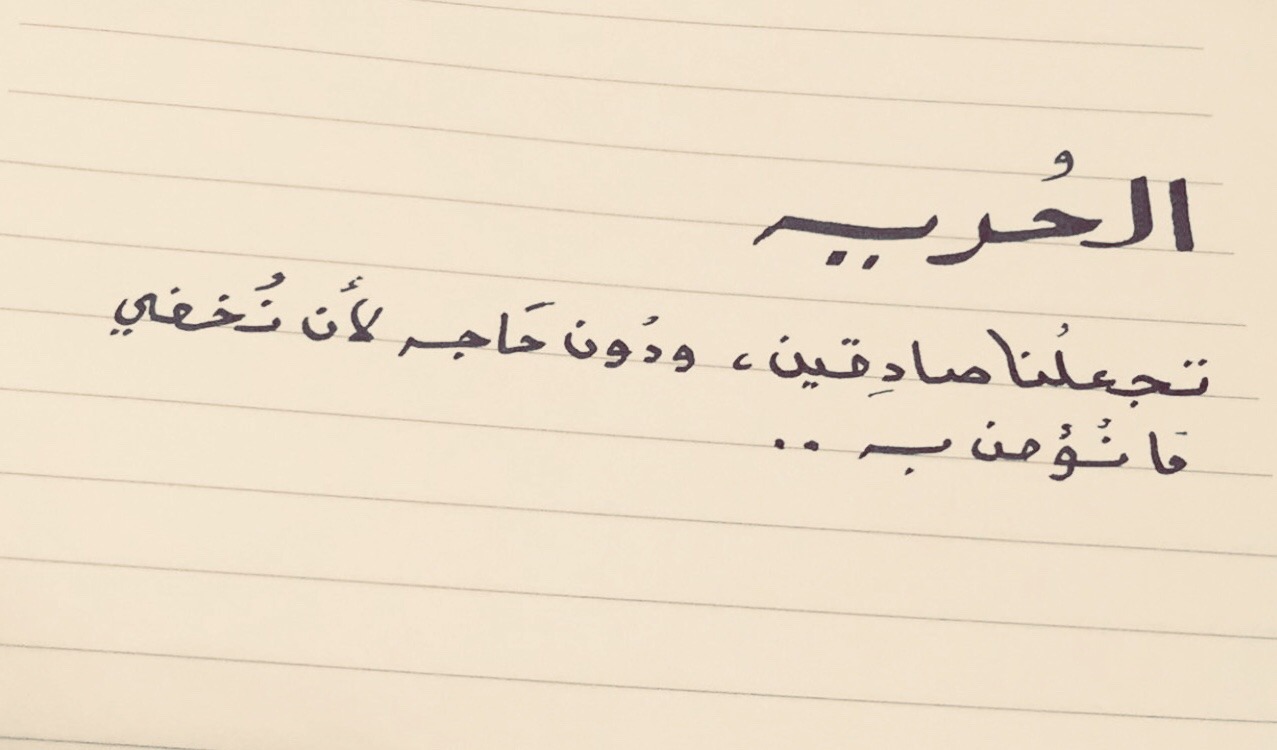 الحُريه
تجعلُنا صادِقين، ودُون حَاجه لأن نُخفي
مَا نُؤمن به ..